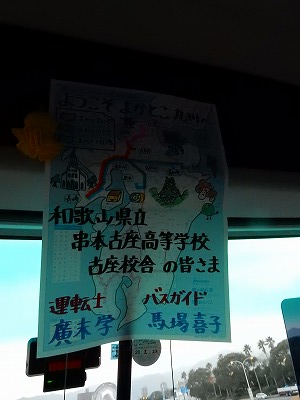 ようこそ よかとこ 九州へ
和歌山県立
串本古座高等学校
古座校舎 の皆さま
運転士 バスガイド
廣末学 馬場喜子